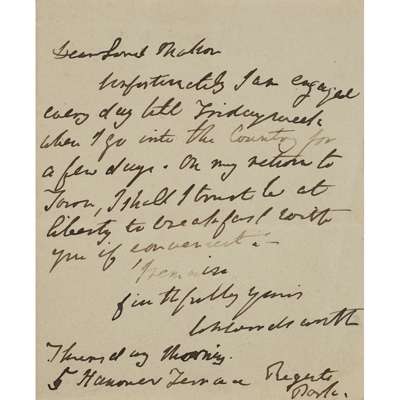 Dear Lord Mahon
Unfortunately I am engaged
every day till Friday week
when I go into the Country for
a few days. On my return to
Town, I shall I trust be at
liberty to breakfast with
you if convenient.
I remain
faithfully yours
Wm Wordsworth
Thursday Morning.
5 Hanover Terrace Regents
Park.